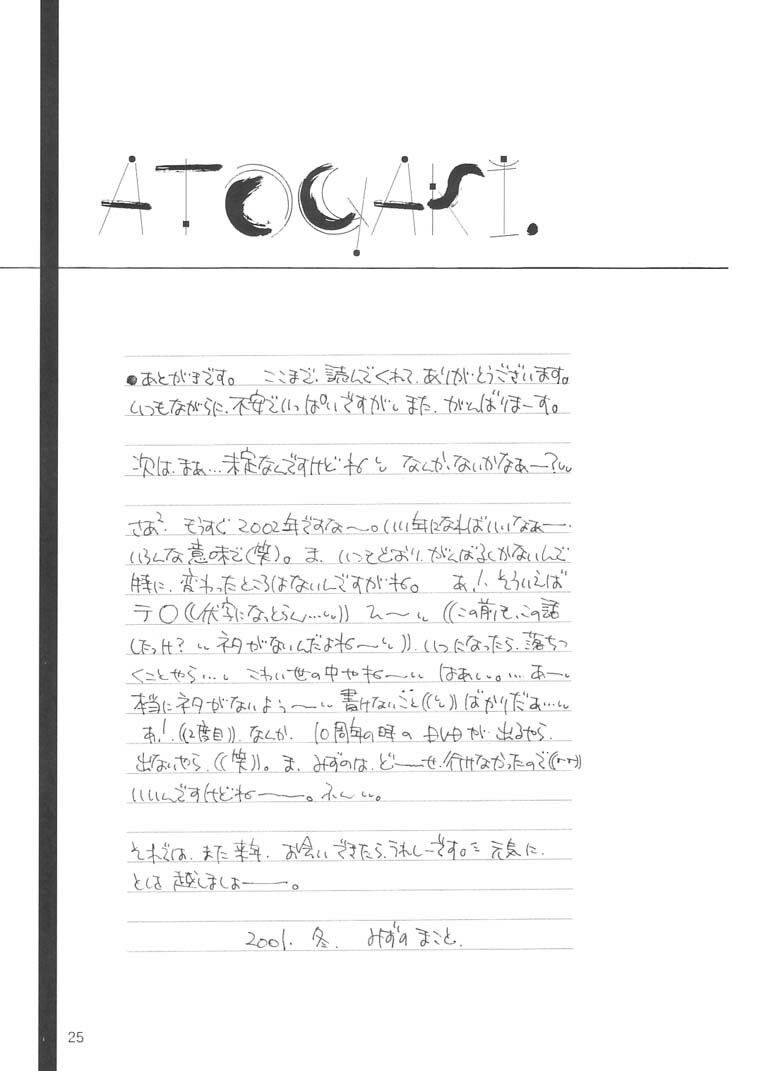 ATOGAKI.
●あとがきです。 ここまで、読んでくれて、ありがとうございます。
いつもながらに、不安でいっぱいですが、また、がんばりまーす。
次は、まぁ…未定なんですけどね なんか、ないかなぁー?
さあ² もうすぐ 2002年ですな〜。いい年になればいいなぁー
いろんな意味で(笑)。ま、いつもどおり、がんばるしかないんで
特に、変わったところはないんですがね。 あ!、そういえば
テ〇((伏字になっとらん…)) ひ〜 ((この前も、この話
したっけ? ネタがないんだよね〜)). いつになったら、落ちつ
くことやら… こわい世の中やね〜 はぁ。…あー
本当にネタがないよぅ〜 書けないこと ばかりだぁ…
あ!((2度目)) なんか、10周年の時の DVDが、出るやら、
出ないやら、((笑))。ま、みずのは、どーーせ、行けなかったので
いいんですけどねーー。ふん。
それでは、また来年、お会いできたら、うれしーです。 元気に、
とは 越しましょーー。
2001. 冬. みずの まこと.
25